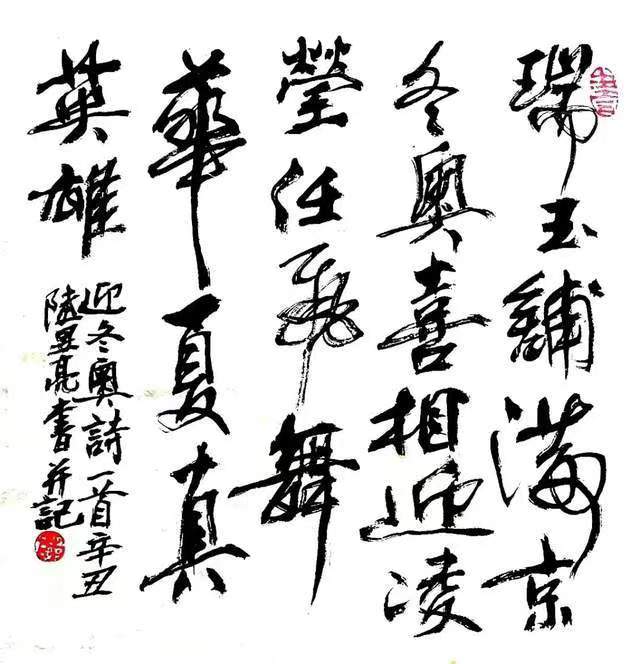 瑞玉鋪滿京
冬奧喜相迎凌
瑩任飛舞
華夏真
英雄
迎冬奧詩一首辛丑
陸昱亮書并記